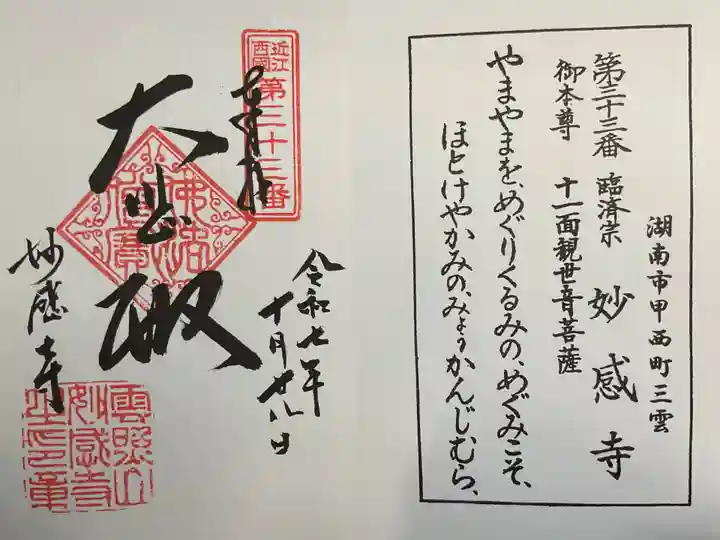 湖南市甲西町三雲
第三十三番 臨済宗 妙感寺
御本尊 十一面観世音菩薩
やまやまを、めぐりくるみの、めぐみこそ、
ほとけやかみの、みょうかんじむら、
近江
西国
第三十三番
奉拝
大悲殿
令和七年
十月廿八日
妙感寺
佛法僧寶
雲照山
妙感寺